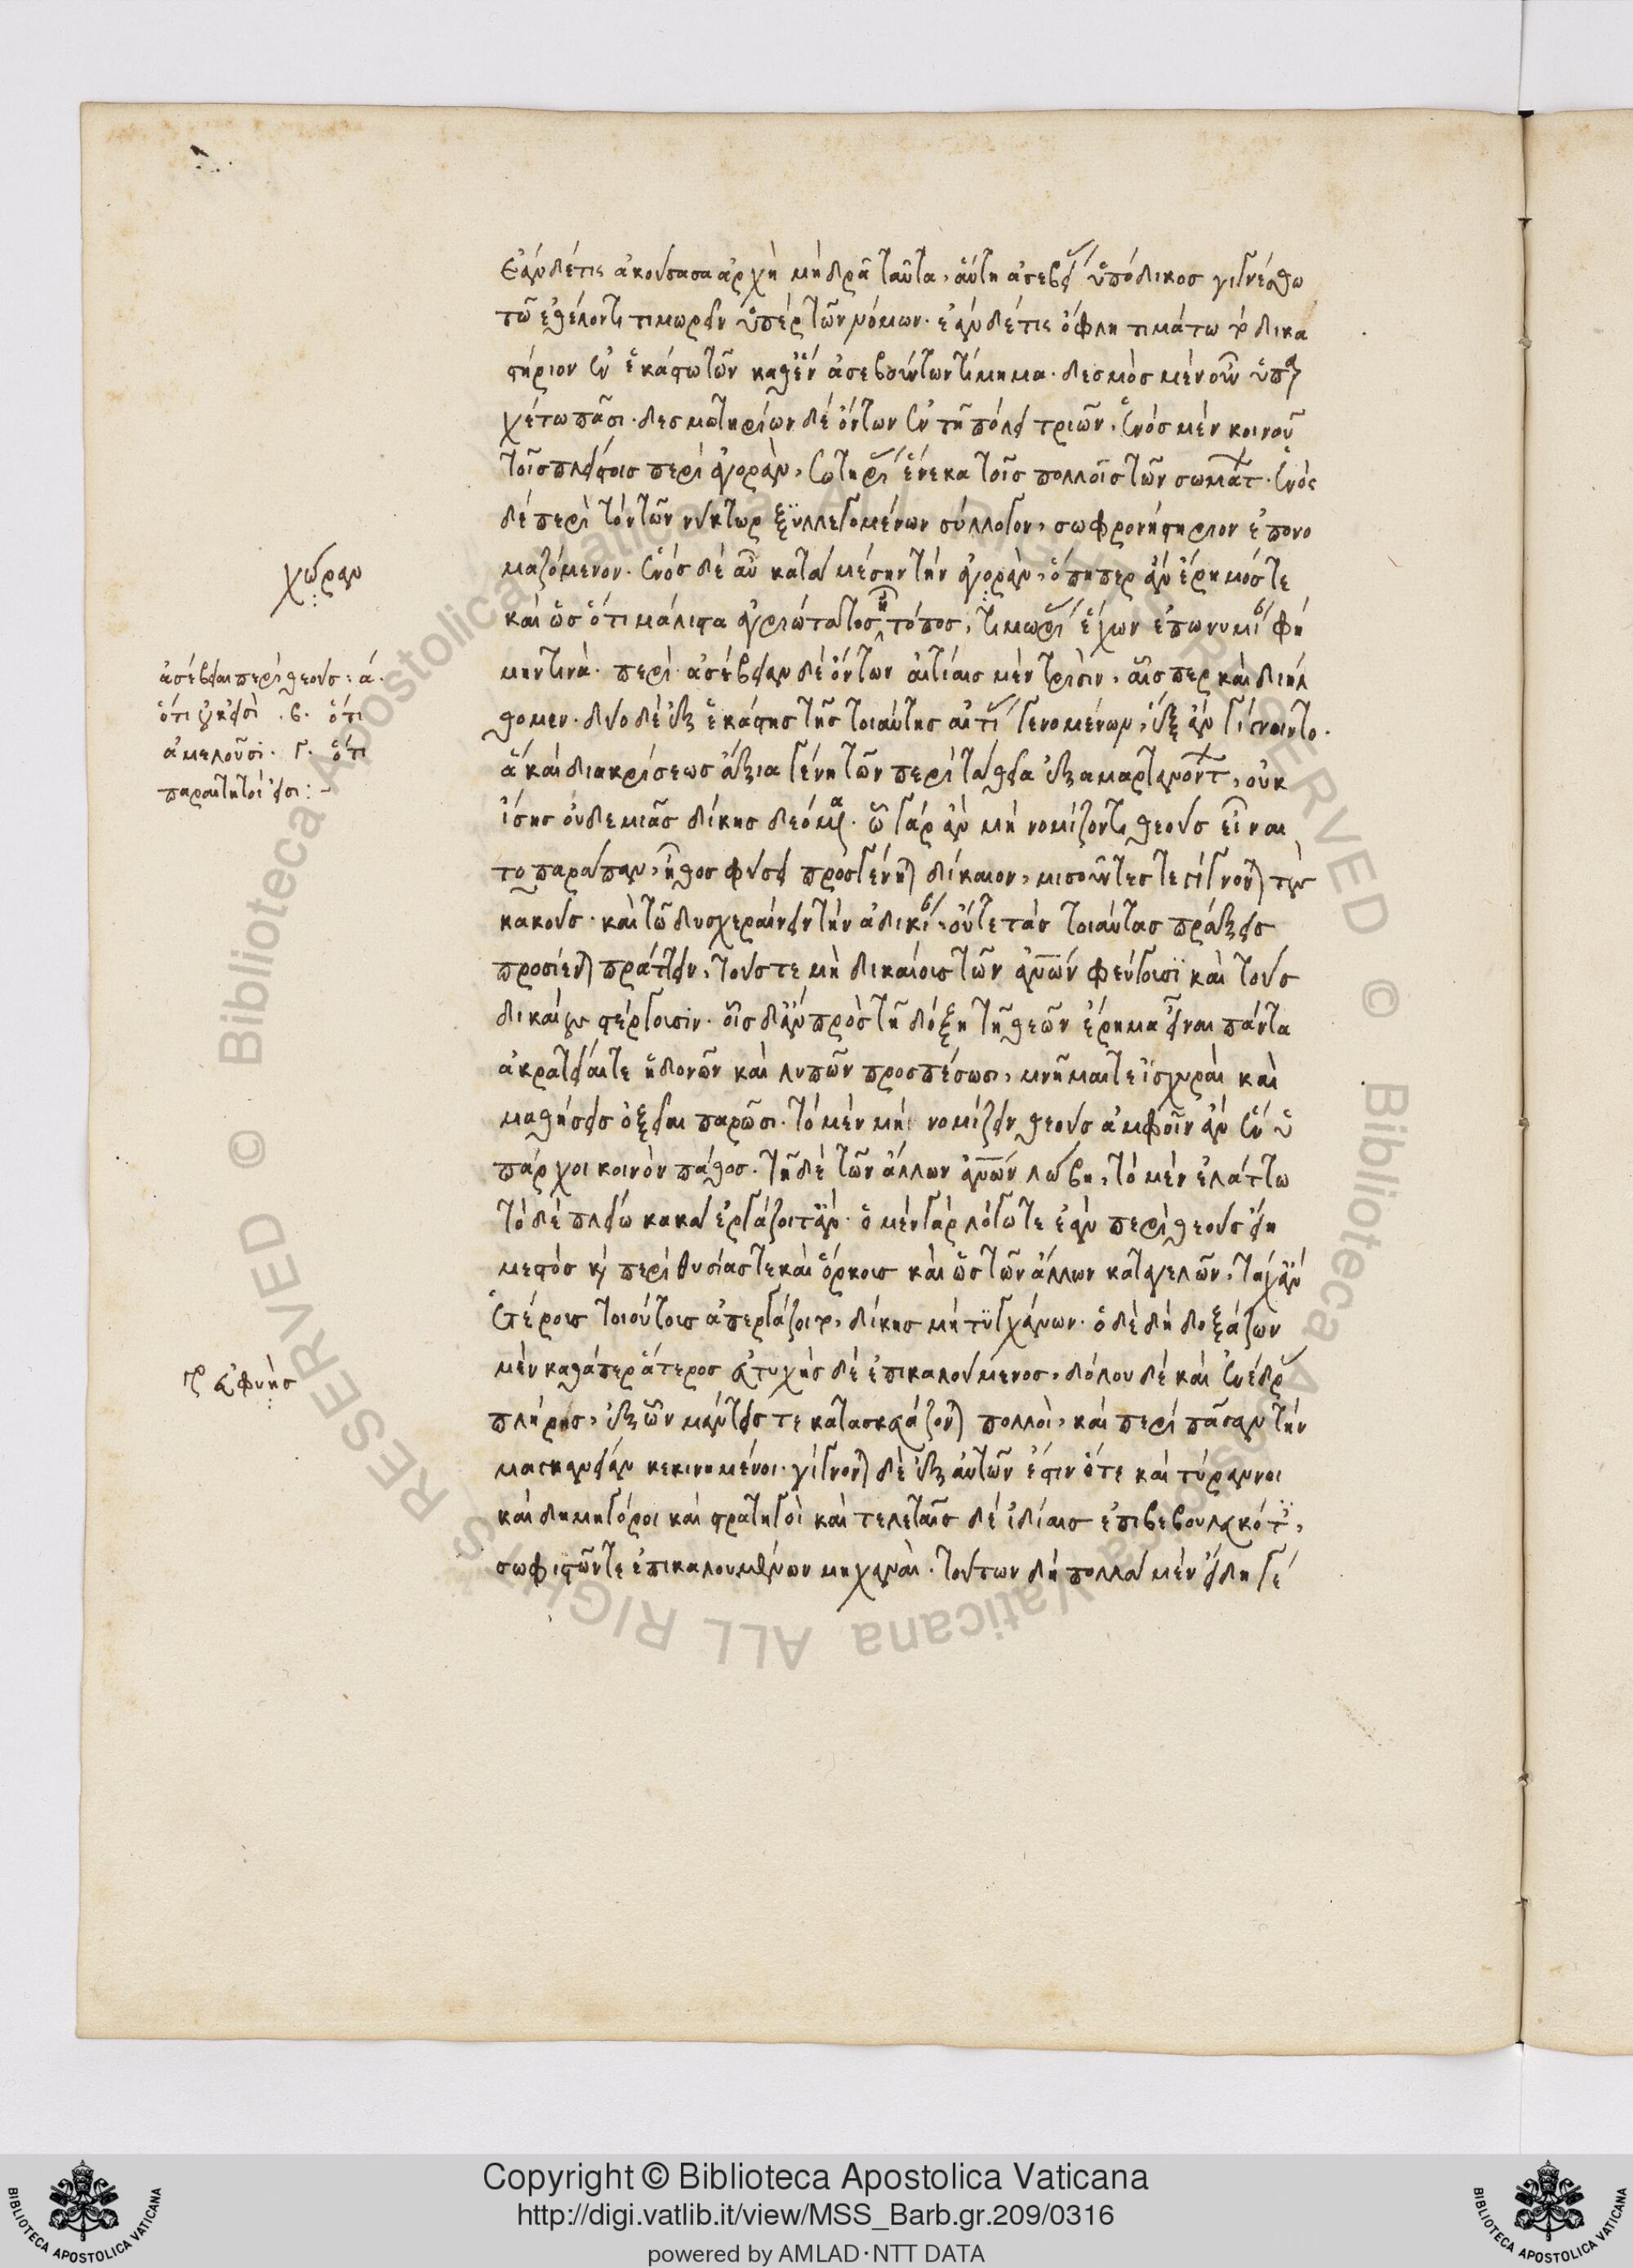 ἐὰν δέ τις ἀκούσασα ἀρχὴ μὴ δρᾶ ταῦτα, αὕτη ἀσεβείας ὑπόδικος γιγνέσθω
τῶ ἐθέλοντι τιμωρεῖν ὑπὲρ τῶν νόμων. ἐὰν δέ τις ὄφλη τιμάτω τὸ δικα
στήριον ἓν ἑκάστω τῶν καθ' ἓν ἀσεβούντων τίμημα. δεσμὸς μὲν οὖν ὑπαρ
χέτω πᾶσι. δεσμωτηρίων δὲ ὄντων ἐν τῆ πόλει τριῶν, ἑνὸς μὲν κοινοῦ
τοῖς πλείστοις περὶ ἀγορὰν, σωτηρίας ἕνεκα τοῖς πολλοῖς τῶν σωμάτων. ἑνὸς
δὲ περὶ τὸν τῶν νύκτωρ ξυλλεγομένων σύλλογον, σωφρονηστήριον ἐπονο
μαζόμενον. ἑνὸς δὲ αὖ κατὰ μέσην τὴν ἀγορὰν, ὅπηπερ ἂν ἔρημός τε
καὶ ὡς ὅτι μάλιστα ἀγριώτατος ἦ τόπος, τιμωρίας ἔχων ἐπωνυμίαν φή
μην τινά. περὶ ἀσέβειαν δὲ ὄντων αἰτίαις μὲν τρισὶν, αἷσπερ καὶ διήλ
θομεν. δύο δὲ ἐξ ἑκάστης τῆς τοιαύτης αἰτίας γενομένων, ἓξ ἂν γίγνοιντο.
ἃ καὶ διακρίσεως ἄξια γένη τῶν περὶ τὰ θεῖα ἐξαμαρτανόντων, οὐκ
ἴσης οὐδὲ μιᾶς δίκης δεόμενα. ὧ γὰρ ἂν μὴ νομίζοντι θεοὺς εἶναι
τοπαράπαν, ἦθος φύσει προσγένηται δίκαιον, μισοῦντές τε γίγνονται τοὺς
κακοὺς. καὶ τῶ δυσχεραίνειν τὴν ἀδικίαν, οὔτε τὰς τοιαύτας πράξεις
προσίενται πράττειν, τούς τε μὴ δικαίοις τῶν ἀνθρώπων φεύγουσι καὶ τοὺς
δικαίους στέργουσιν. οἷς δ' ἂν πρὸς τῆ δόξη τῆ θεῶν ἔρημα εἶναι πάντα
ἀκράτειαί τε ἡδονῶν καὶ λυπῶν προσπέσωσι, μνῆμαί τε ἰσχυραὶ καὶ
μαθήσεις ὀξεῖαι παρῶσι. τὸ μὲν μὴ νομίζειν θεοὺς ἀμφοῖν ἂν ἐνυ
πάρχοι κοινὸν πάθος. τῆ δὲ τῶν ἄλλων ἀνθρώπων λώβη, τὸ μὲν ἐλάττω
τὸ δὲ πλείω κακὰ ἐργάζοιτ' ἄν. ὁ μὲν γὰρ λόγω τε ἐὰν περὶ θεοὺς εἴη
μεστὸς καὶ περὶ θυσίας τε καὶ ὅρκους καὶ ὡς τῶν ἄλλων καταγελῶν, τάχ' ἂν
ἑτέρους τοιούτους ἀπεργάζοιτο, δίκης μὴ τυγχάνων. ὁ δὲ δὴ δοξάζων
μὲν καθάπερ ἅτερος εὐτυχὴς δὲ ἐπικαλούμενος, δόλου δὲ καὶ ἐνέδρας
πλήρης, ἐξ ὧν μάντεις τε κατασκευάζονται πολλοὶ, καὶ περὶ πᾶσαν τὴν
μαγγανείαν κεκινημένοι. γίγνονται δὲ ἐξ αὐτῶν ἔστιν ὅτε καὶ τύραννοι
καὶ δημηγόροι καὶ στρατηγοὶ καὶ τελεταῖς δὲ ἰδίαις ἐπιβεβουλευκότες,
σωφιστῶν τε ἐπικαλουμένων μηχαναὶ. τούτων δὴ πολλὰ μὲν εἴδη γέ
χώραν
ἀσέβειαι περὶ θεοὺς: α.
ὅτι οὐκ εἰσὶ. β. ὅτι
ἀμελοῦσι. γ. ὅτι
παραιτητοί εἰσι:-
γρ εὐφυὴς
Copyright © Biblioteca Apostolica Vaticana
http://digi.vatlib.it/view/MSS_Barb.gr.209/0316
powered by AMLAD·NTT DATA
BIBLIOTECA APOSTOLICA VATICANA
BIBLIOTECA APOSTOLICA VATICANA